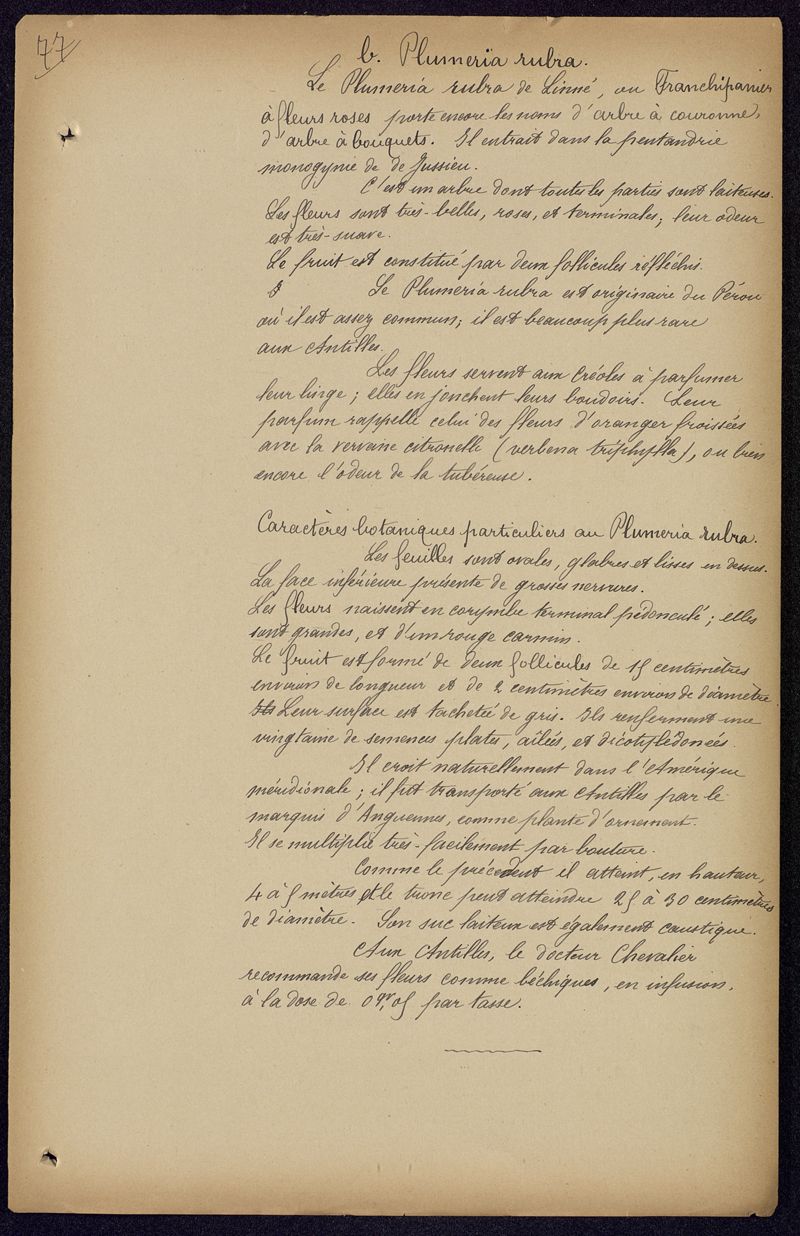 77
b. Plumeria rubra.
Le Plumeria rubra de Linné, ou Franchipanier
à fleurs roses porte encore les noms d'arbre à couronne,
d'arbre à bouquets. Il entrait dans la pentandrie
monogynie de de Jussieu.
C'est un arbre dont toutes les parties sont laiteuses.
Les fleurs sont très-belles, roses, et terminales; leur odeur
est très-suave.
Le fruit est constitué par deux follicules réfléchis.
Le Plumeria rubra est originaire du Pérou
où il est assez commun; il est beaucoup plus rare
aux Antilles.
Les fleurs servent aux créoles à parfumer
leur linge; elles en jonchent leurs boudoirs. Leur
parfum rappelle celui des fleurs d'oranger froissées
avec la verveine citronelle (verbena triphylla), ou bien
encore l'odeur de la tubéreuse.
Caractères botaniques particuliers au Plumeria rubra.
Les feuilles sont ovales, glabres et lisses en dessus.
La face inférieure présente de grosses nervures.
Les fleurs naissent en corymbe terminal pédonculé; elles
sont grandes, et d'un rouge carmin.
Le fruit est formé de deux follicules de 15 centimètres
environ de longueur et de 2 centimètres environ de diamètre.
Leur surface est tachetée de gris. Ils renferment une
vingtaine de semences plates, aîlées, et dicotylédonées.
Il croit naturellement dans l'Amérique
méridionale; il fut transporté aux Antilles par le
marquis d'Anguennes, comme plante d'ornement.
Il se multiplie très-facilement par bouture.
Comme le précedent il atteint, en hauteur,
4 à 5 mètres et le tronc peut atteindre 25 à 30 centimètres
de diamètre. Son suc laiteux est également caustique.
Aux Antilles, le docteur Chevalier
recommande ses fleurs comme béchiques, en infusion,
à la dose de 0gr,05 par tasse.